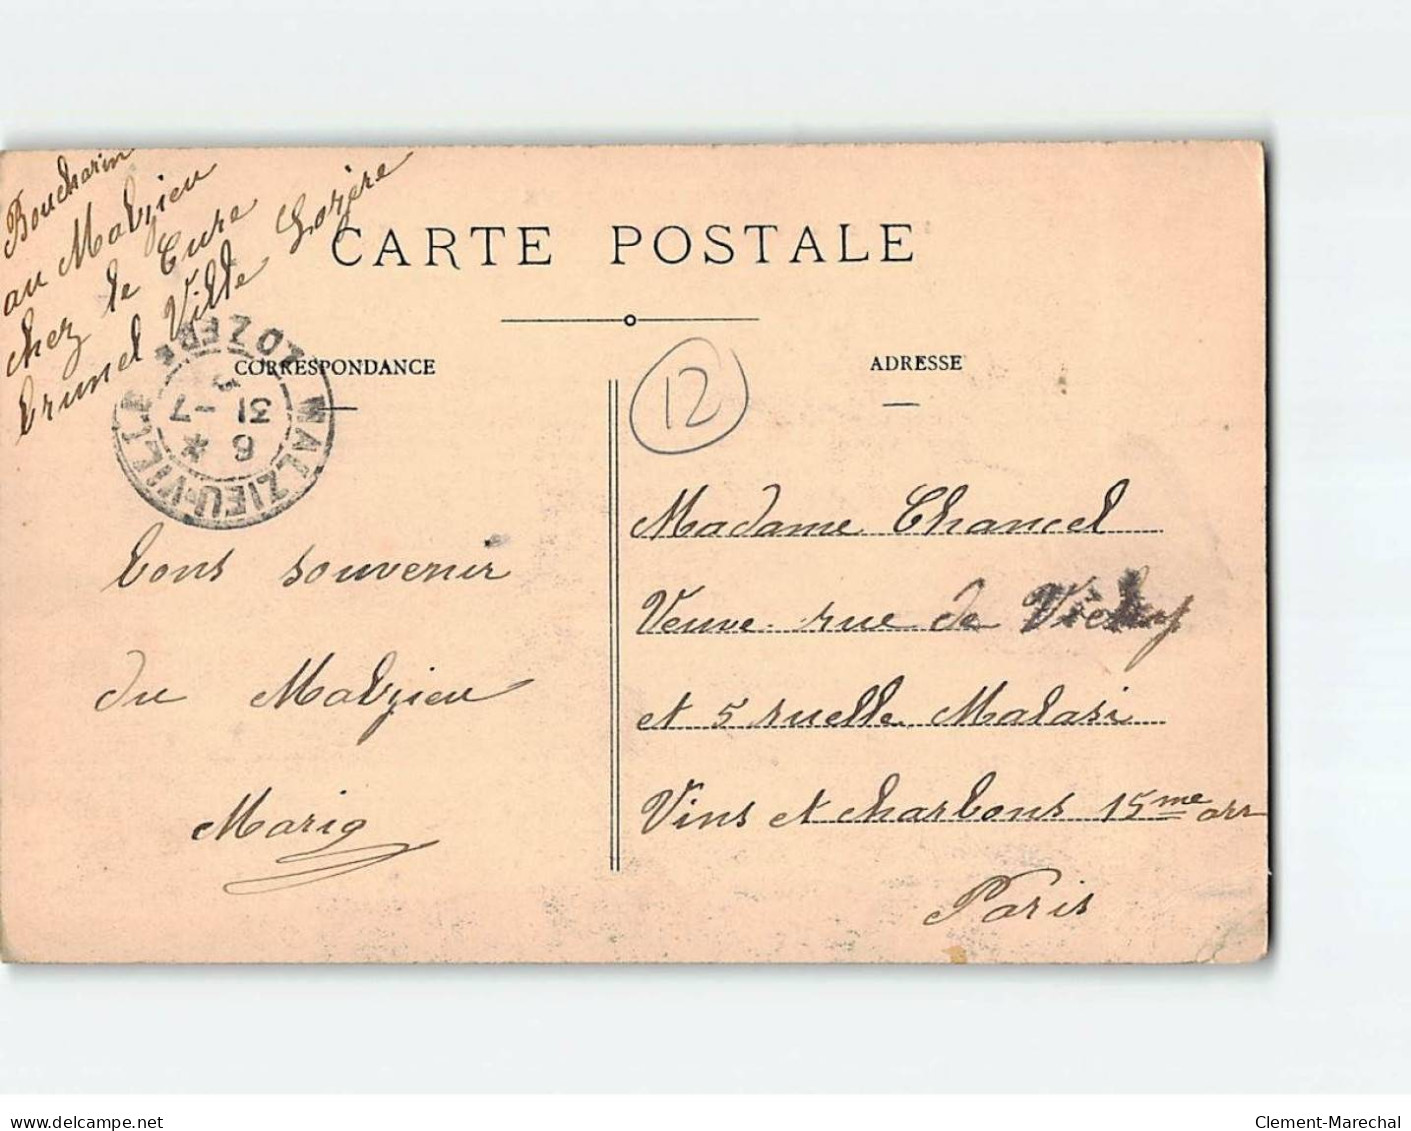 Boucharin
au Malzieu
chez le Cure
brunel Ville Lozère
CARTE POSTALE
CORRESPONDANCE
ADRESSE
12
MALZIEU-VILLE
LOZERE
6 *
31 -7
bons souvenir
du Malzieu
Marie
Madame Chancel
Veuve rue de Vichy
et 5 ruelle Malasi
Vins et charbons 15me arr
Paris
delcampe.net
Clement-Marechal